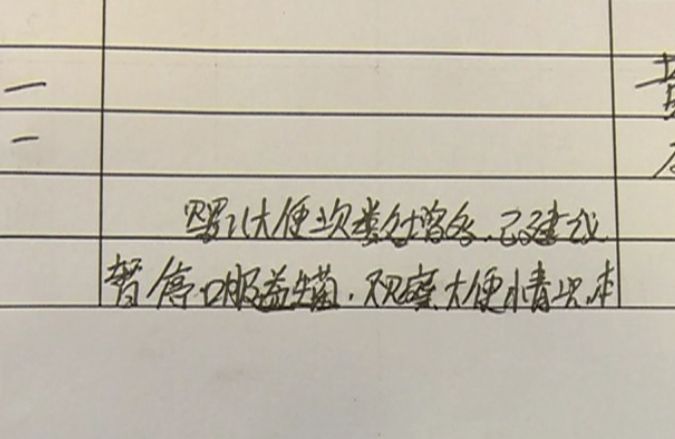 一
一
大便次数增多,已建议
暂停口服益生菌,观察大便情况